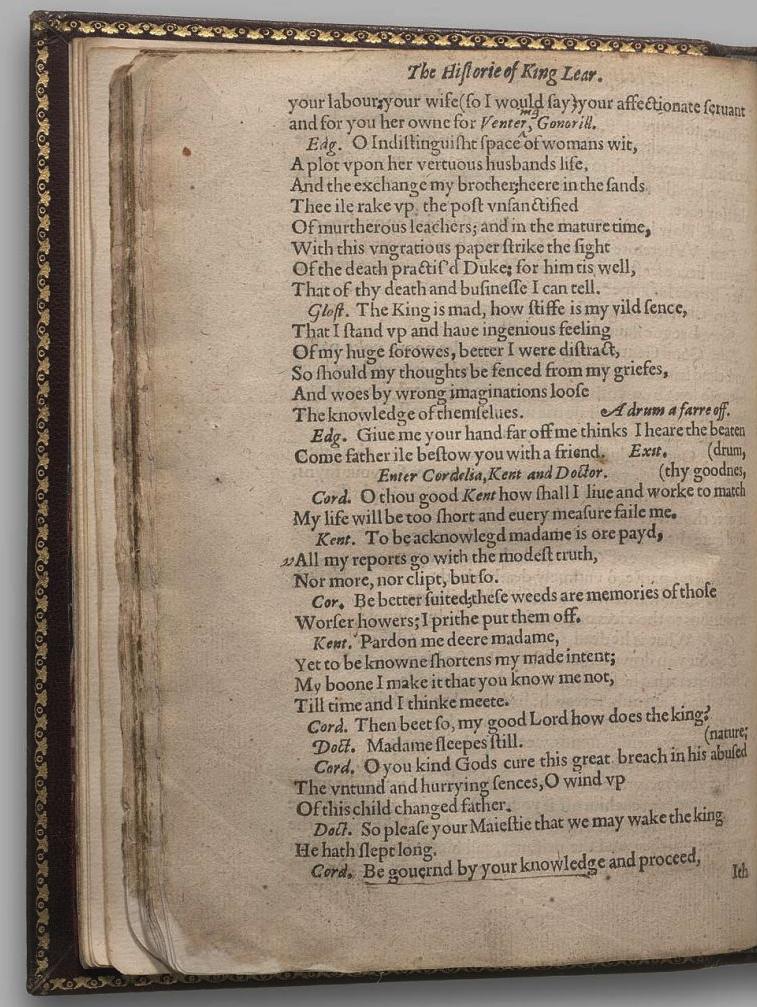 The Hiſtorie of King Lear.
your labour; your wife (ſo I would ſay) your affectionate ſeruant
and for you her owne for Venter, Gonorill.
Edg. O Indiſtinguiſht ſpace of womans wit,
A plot vpon her vertuous husbands life,
And the exchange my brother; heere in the ſands
Thee ile rake vp, the poſt vnſanctified
Of murtherous leachers; and in the mature time,
With this vngratious paper ſtrike the ſight
Of the death practiſ'd Duke; for him tis well,
That of thy death and buſineſſe I can tell.
Gloſt. The King is mad, how ſtiffe is my vild ſence,
That I ſtand vp and haue ingenious feeling
Of my huge ſorowes, better I were diſtract,
So ſhould my thoughts be fenced from my griefes,
And woes by wrong imaginations looſe
The knowledge of themſelues. A drum a farre off.
Edg. Giue me your hand far off me thinks I heare the beaten
Come father ile beſtow you with a friend. Exit. (drum,
Enter Cordelia, Kent and Doctor. (thy goodnes,
Cord. O thou good Kent how ſhall I liue and worke to match
My life will be too ſhort and euery meaſure faile me.
Kent. To be acknowlegd madame is ore payd,
All my reports go with the modeſt truth,
Nor more, nor clipt, but ſo.
Cor. Be better ſuited; theſe weeds are memories of thoſe
Worſer howers; I prithe put them off.
Kent. Pardon me deere madame,
Yet to be knowne ſhortens my made intent;
My boone I make it that you know me not,
Till time and I thinke meete.
Cord. Then beet ſo, my good Lord how does the king?
Doct. Madame ſleepes ſtill. (nature;
Cord. O you kind Gods cure this great breach in his abuſed
The vntund and hurrying ſences, O wind vp
Of this child changed father.
Doct. So pleaſe your Maieſtie that we may wake the king
He hath ſlept long.
Cord. Be gouernd by your knowledge and proceed,
Ith